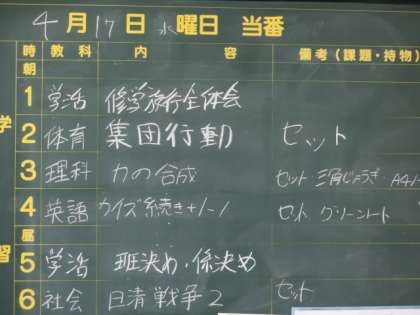 4月17日 水曜日 当番
時 教科 内 容 備考(課題・持物)
朝
1 学活 修学旅行全体会
学
2 体育 集団行動 セット
3 理科 力の合成 セット 三角じょうぎ・A4ノート
4 英語 クイズ続き+1-1 セット グリーンノート
昼
習
5 学活 班決め・係決め
6 社会 日清戦争2 セット